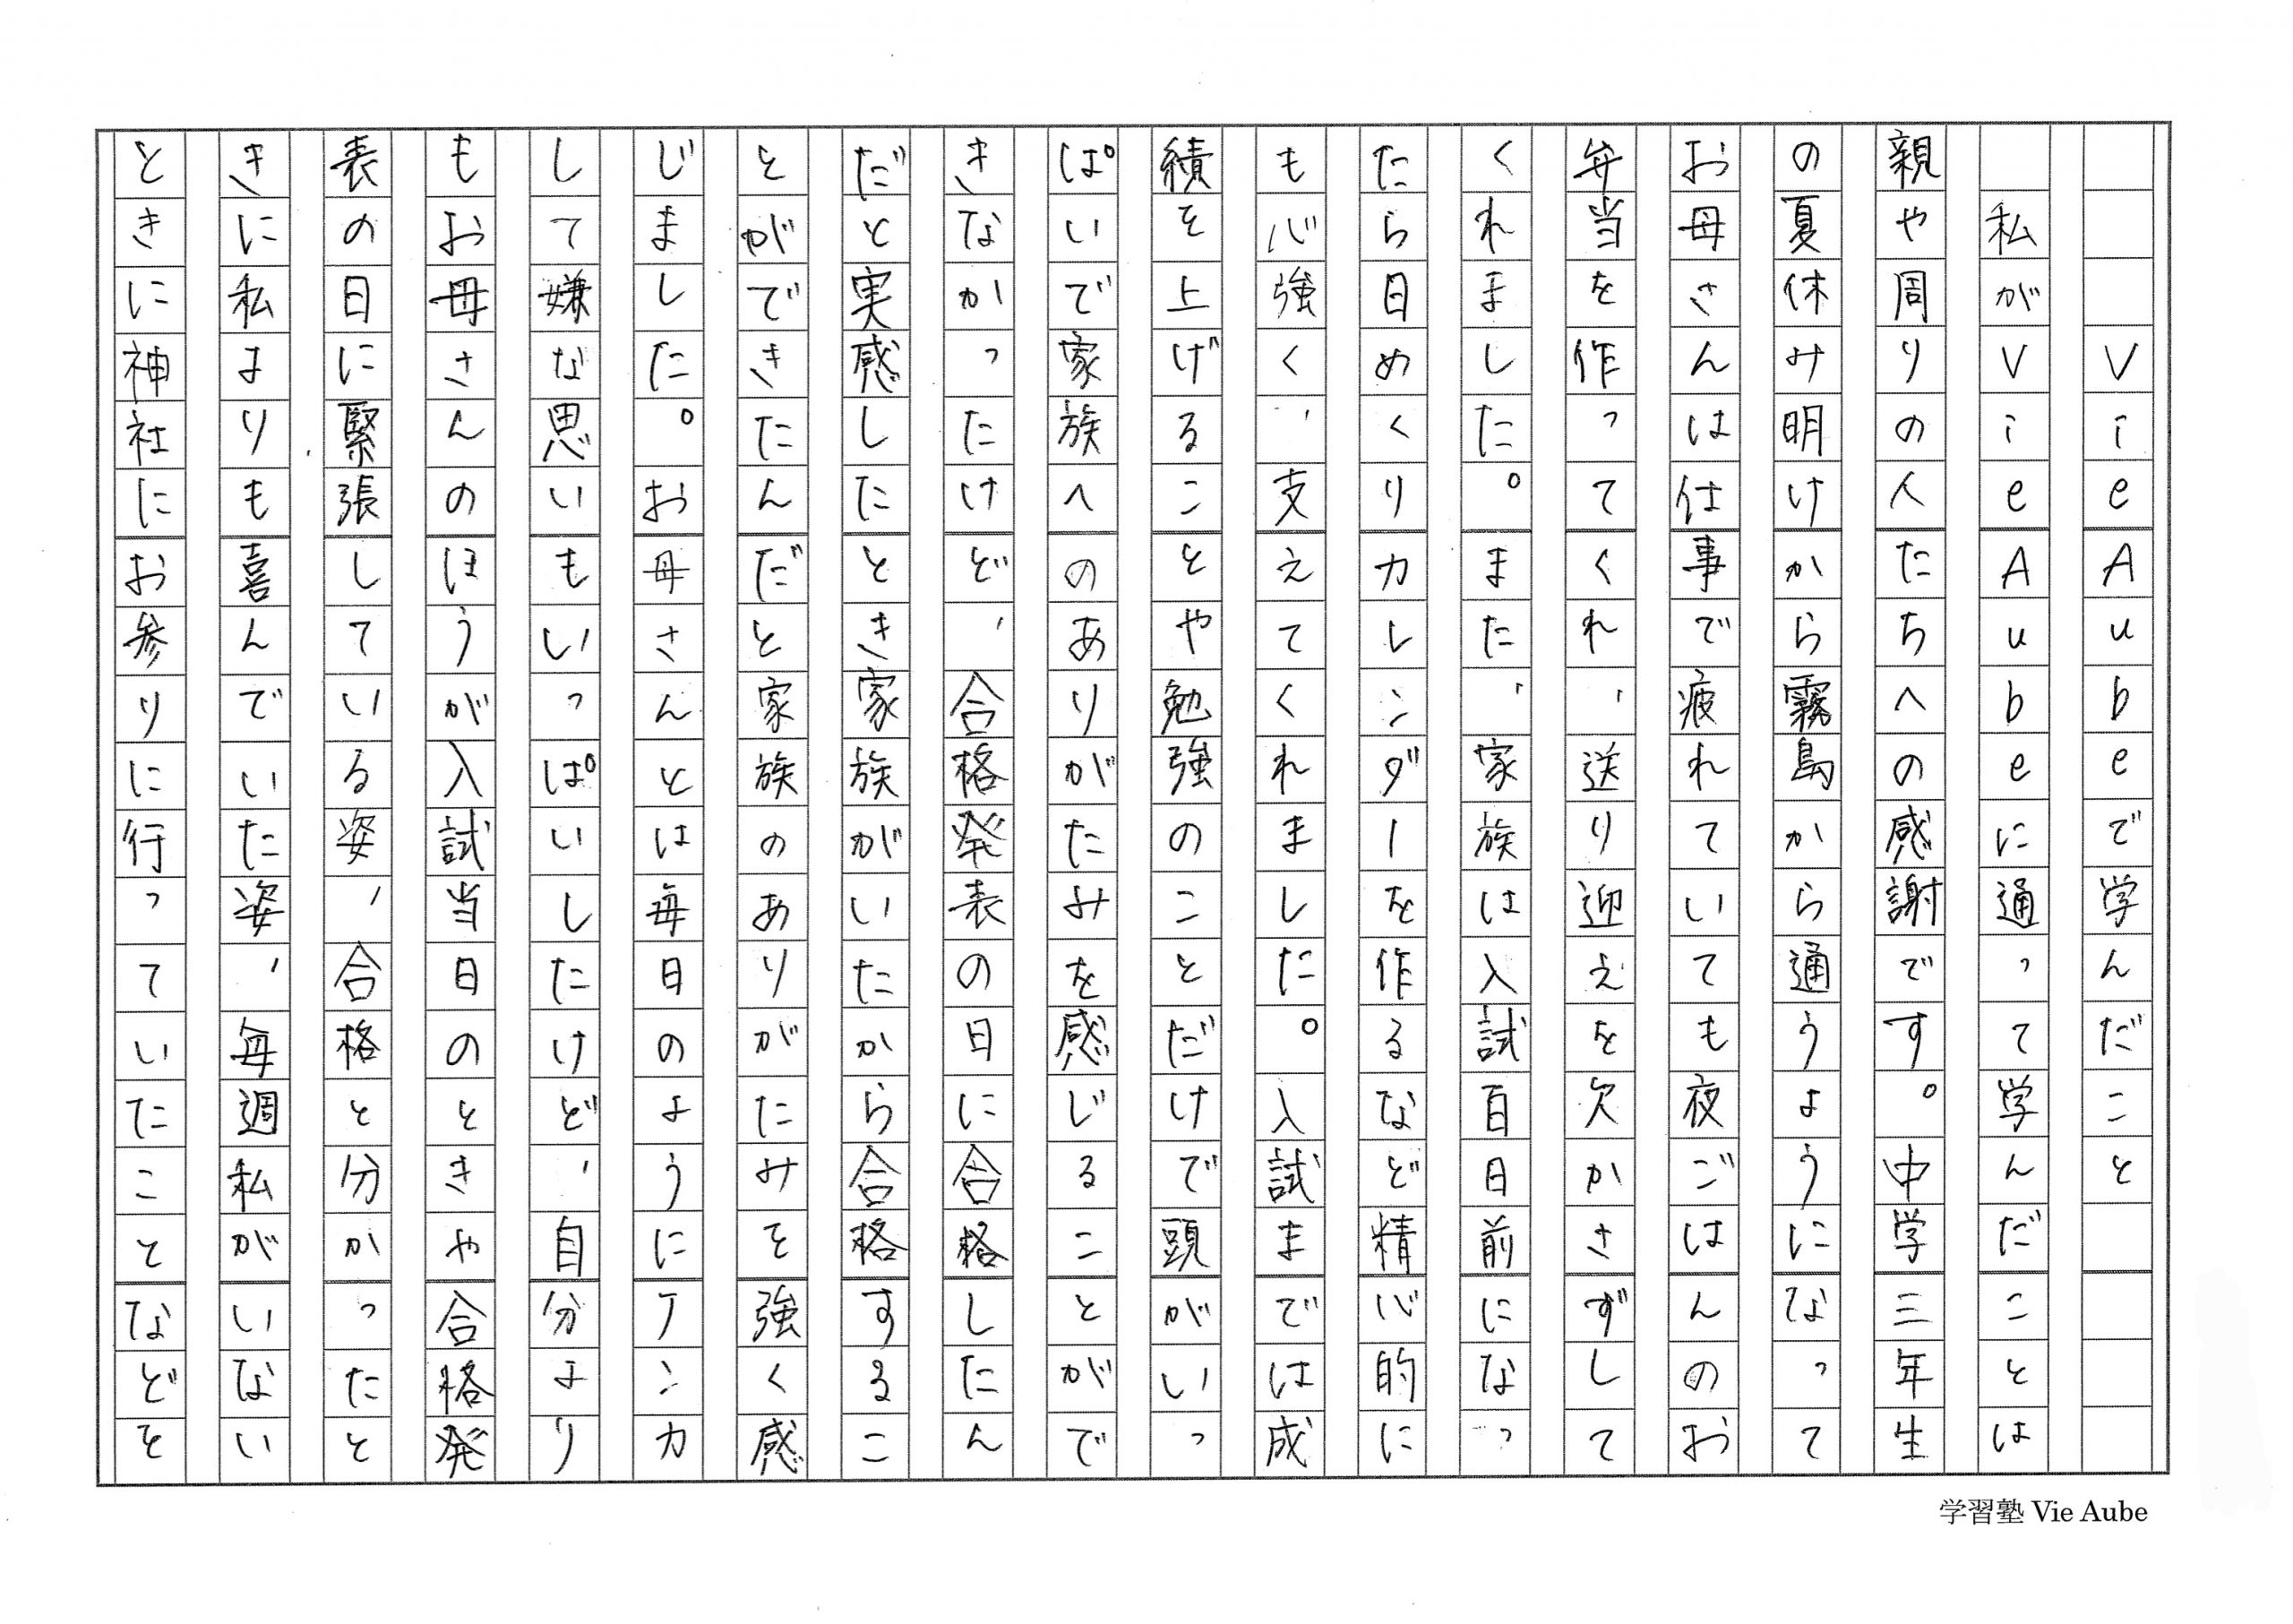 VieAubeで学んだこと
私がVieAubeに通って学んだことは
親や周りの人たちへの感謝です。中学三年生
の夏休み明けから霧島から通うようになって
お母さんは仕事で疲れていても夜ごはんのお
弁当を作ってくれ、送り迎えを欠かさずして
くれました。また、家族は入試百日前になっ
たら日めくりカレンダーを作るなど精心的に
も心強く、支えてくれました。入試までは成
積を上げることや勉強のことだけで頭がいっ
ぱいで家族へのありがたみを感じることがで
きなかったけど、合格発表の日に合格したん
だと実感したとき家族がいたから合格するこ
とができたんだと家族のありがたみを強く感
じました。お母さんとは毎日のようにケンカ
して嫌な思いもいっぱいしたけど、自分より
もお母さんのほうが入試当日のときや合格発
表の日に緊張している姿、合格と分かったと
きに私よりも喜んでいた姿、毎週私がいない
ときに神社にお参りに行っていたことなどを
学習塾 Vie Aube